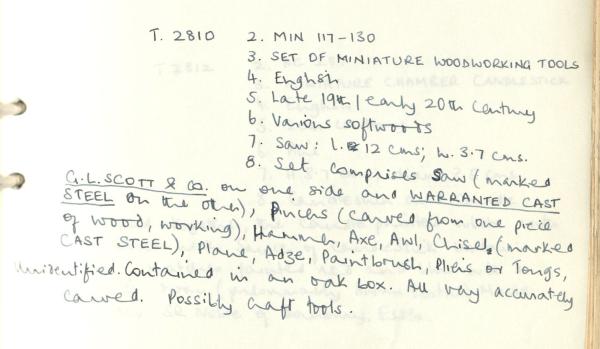 T. 2810 2. MIN 117-130
3. SET OF MINIATURE WOODWORKING TOOLS
4. English
5. Late 19th / early 20th Century
6. Various softwoods
7. Saw: l. 12 cms; w. 3.7 cms.
8. Set comprises Saw (marked
G.L. SCOTT & Co. on one side and WARRANTED CAST
STEEL on the other), Pincers (carved from one piece
of wood, working), Hammer, Axe, Awl, Chisel, (marked
CAST STEEL), Plane, Adze, Paintbrush, Pliers or Tongs,
Unidentified. Contained in an oak box. All very accurately
carved. Possibly craft tools.